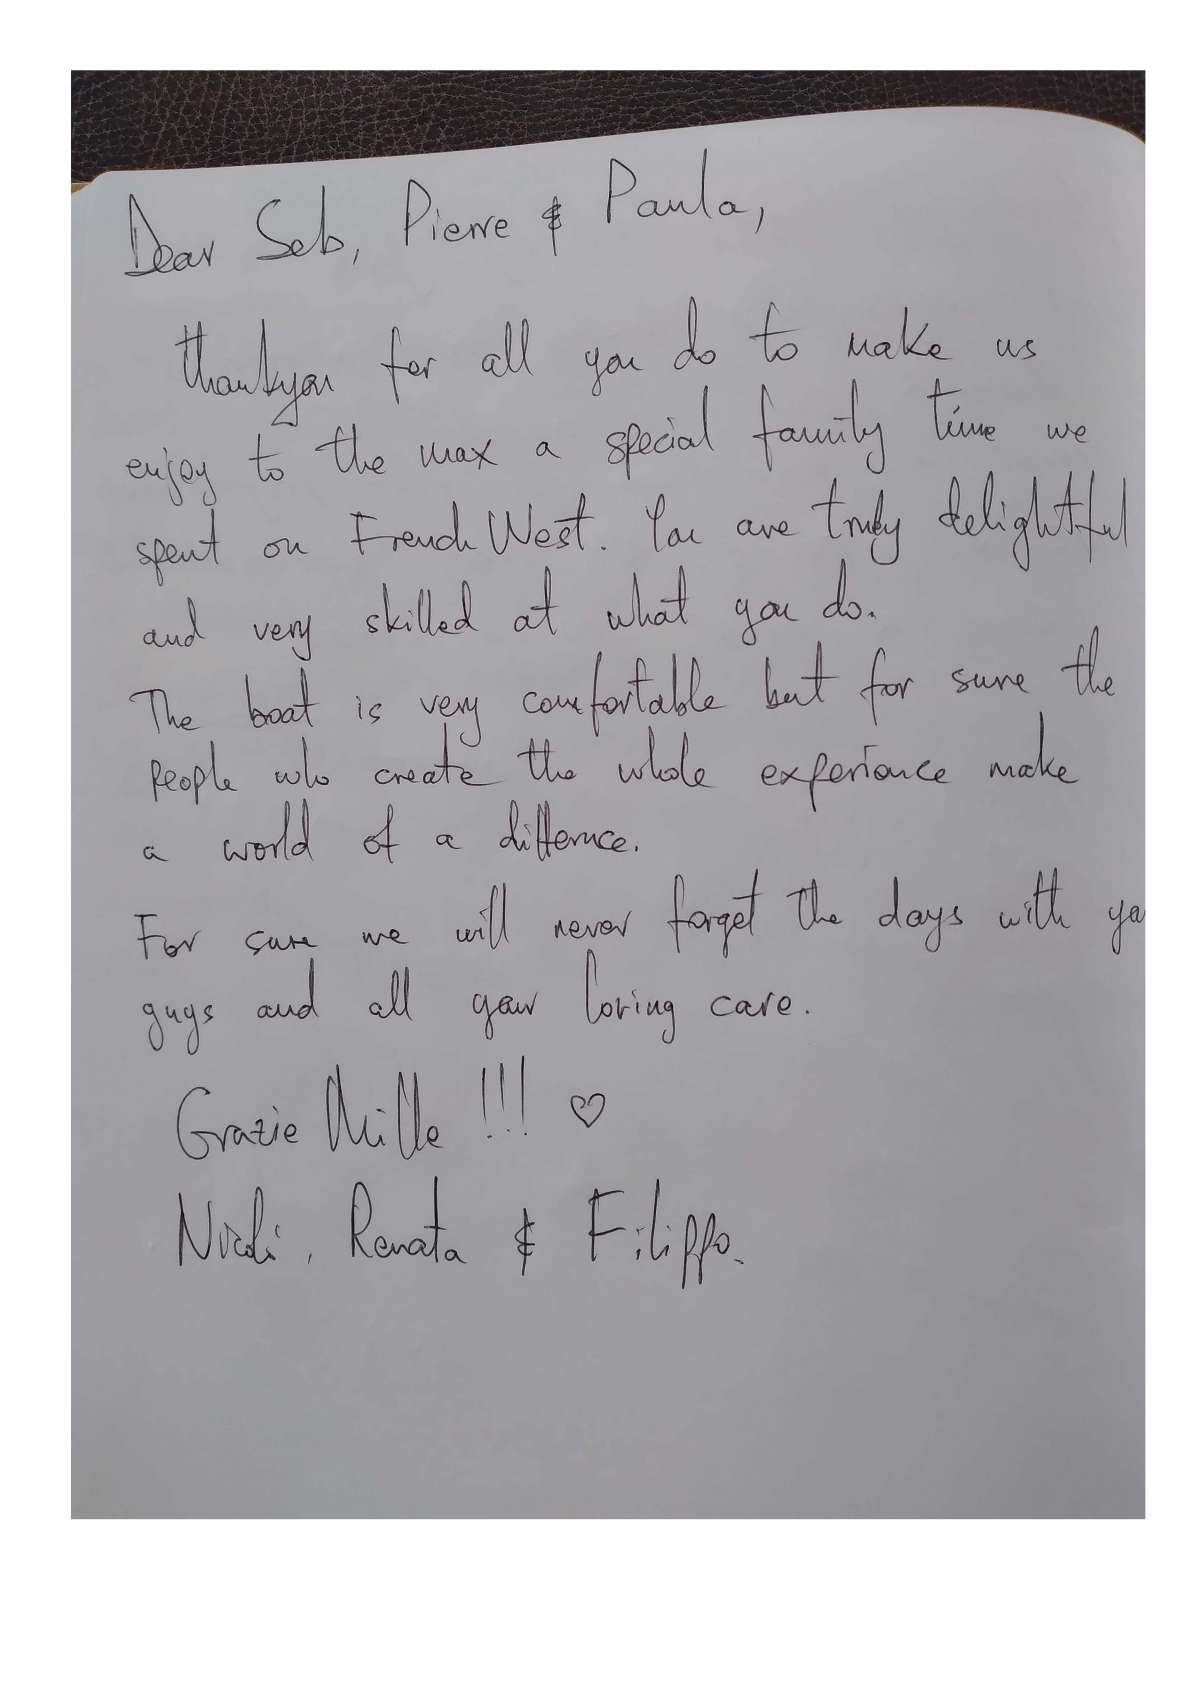 Dear Seb, Pierre & Paula,
thankyou for all you do to make us
enjoy to the max a special family time we
spent on French West. You are truly delightful
and very skilled at what you do.
The boat is very comfortable but for sure the
people who create the whole experience make
a world of a difference.
For sure we will never forget the days with yo
guys and all your loving care.
Grazie Mille !!! ♡
, Renata & Filippo.